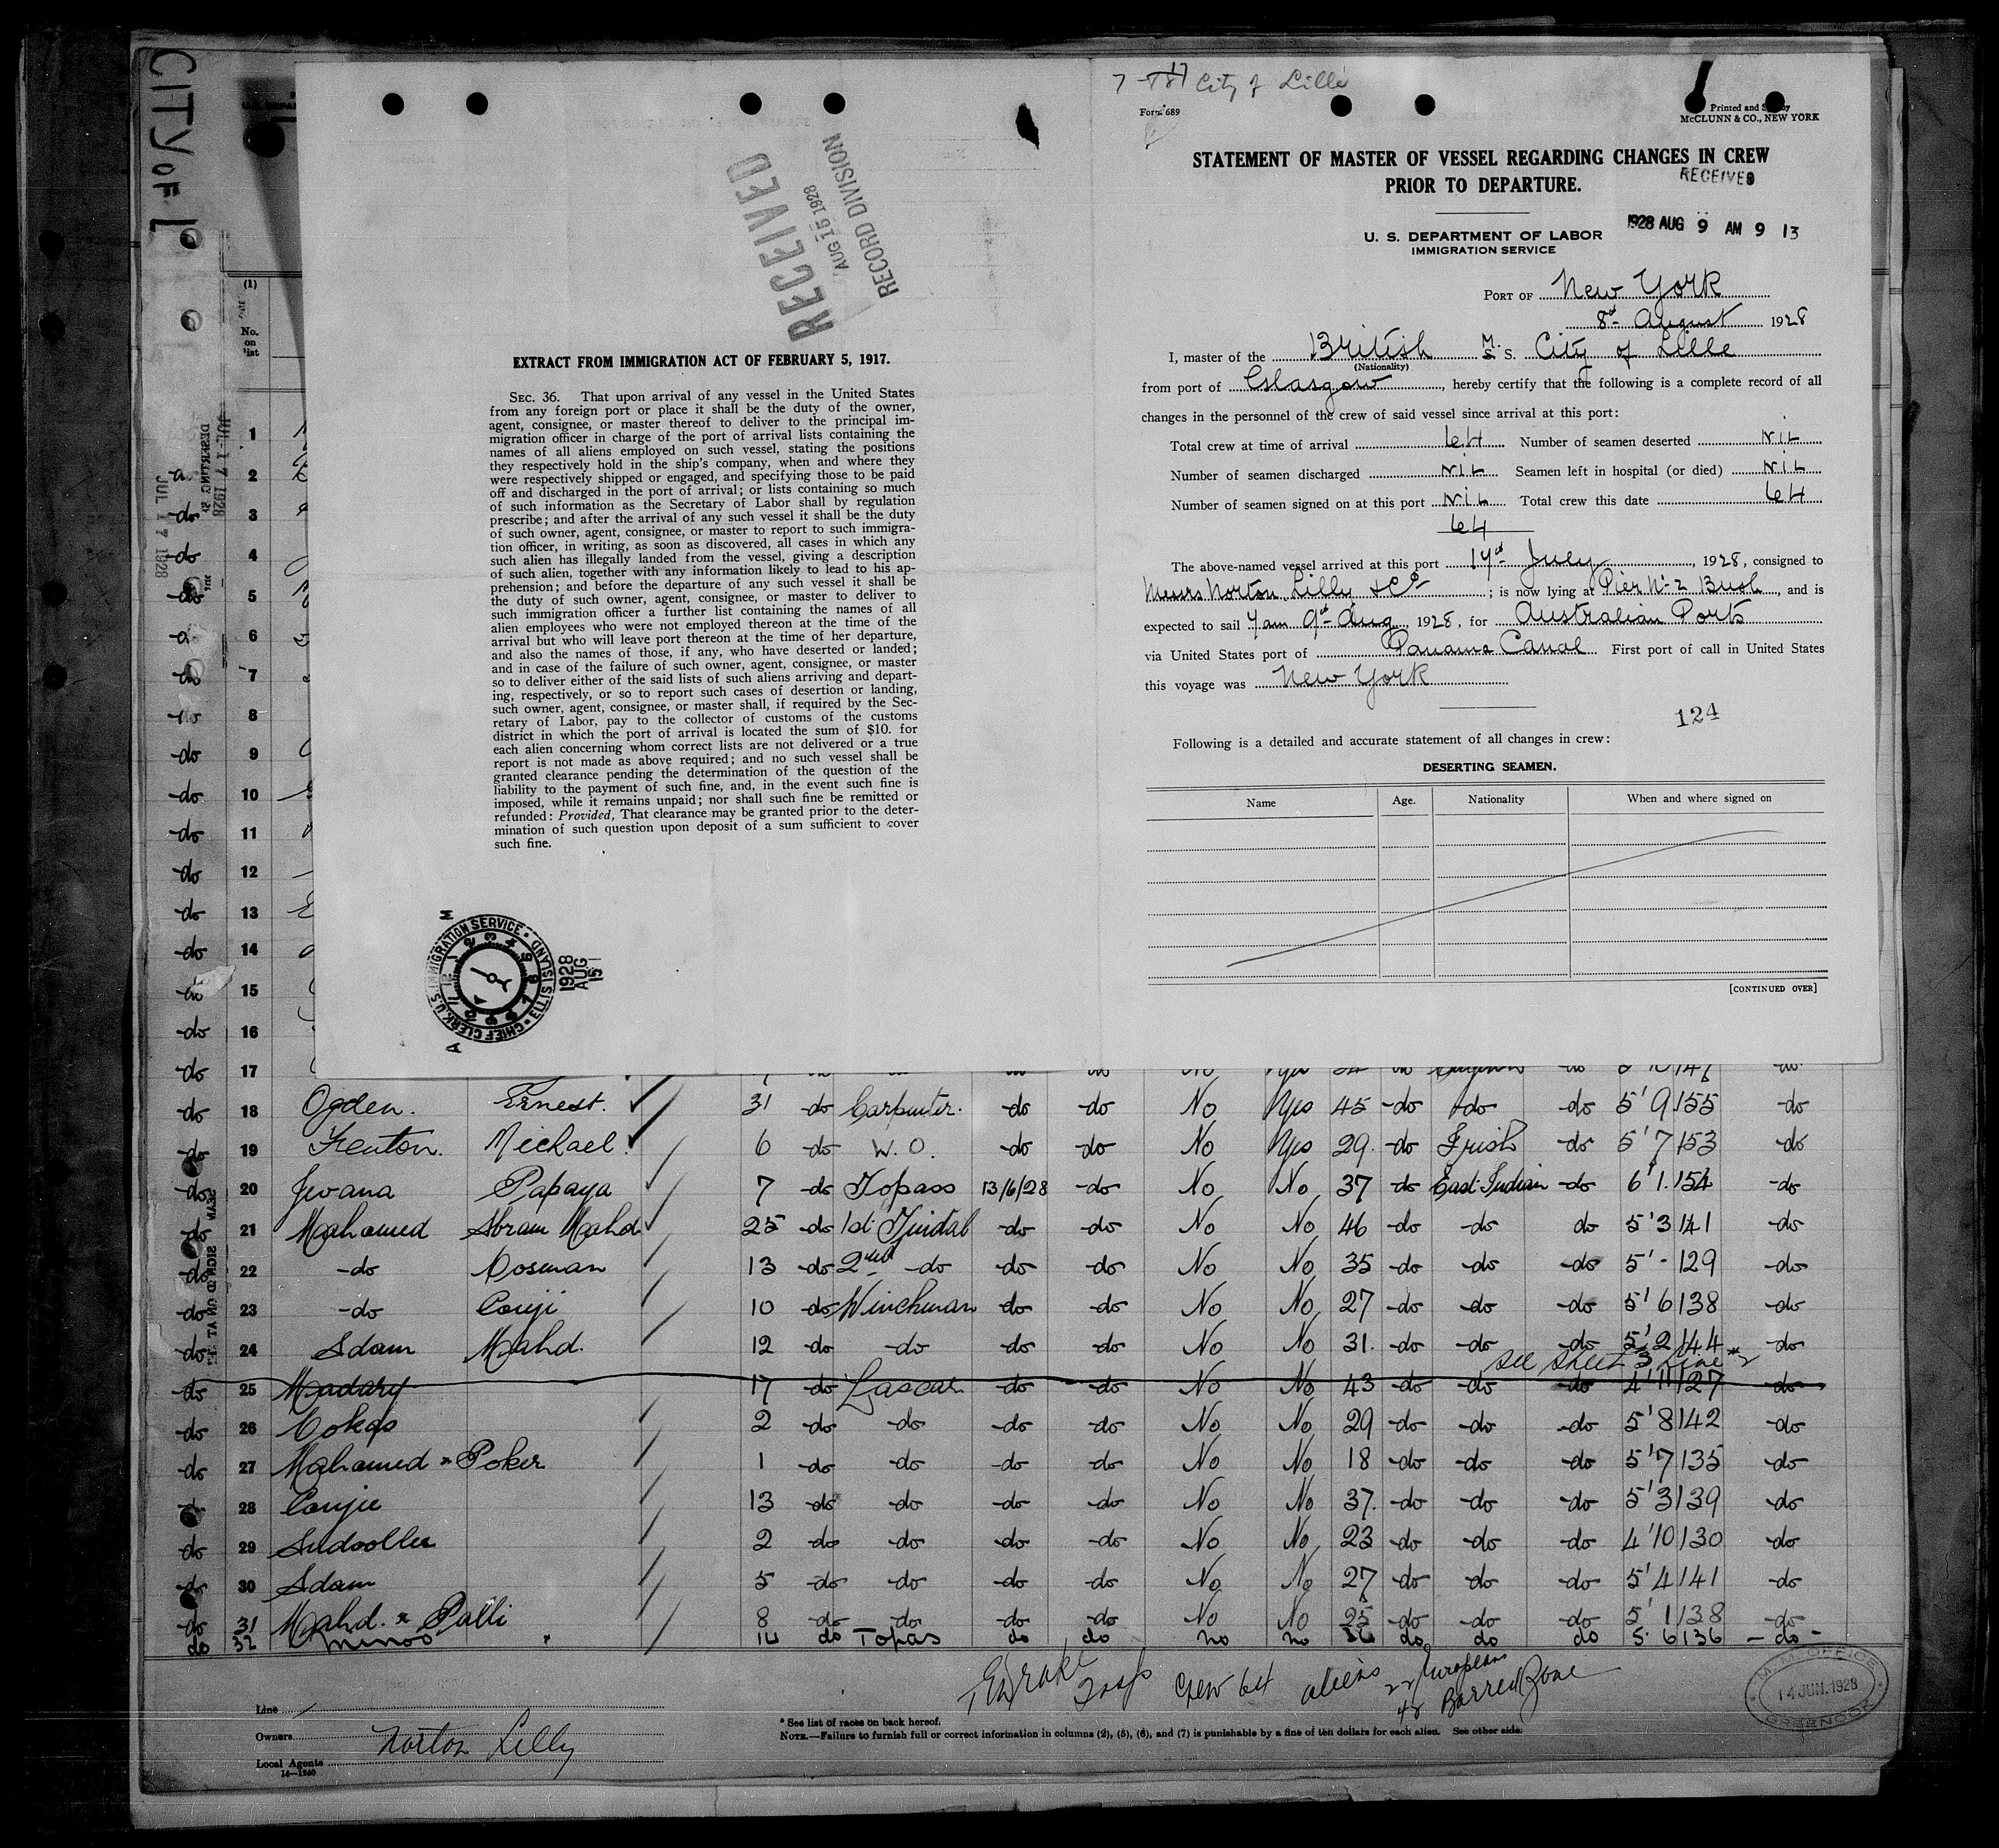 CITY OF L
7-17 City of Lille
Form 689
Printed and Sold by
McCLUNN & CO., NEW YORK
STATEMENT OF MASTER OF VESSEL REGARDING CHANGES IN CREW
PRIOR TO DEPARTURE.
RECEIVED
1928 AUG 9 AM 9 13
U. S. DEPARTMENT OF LABOR
IMMIGRATION SERVICE
PORT OF New York
8th August 1928
I, master of the British M.S. City of Lille
(Nationality)
from port of Glasgow, hereby certify that the following is a complete record of all
changes in the personnel of the crew of said vessel since arrival at this port:
Total crew at time of arrival 64 Number of seamen deserted NIL
Number of seamen discharged NIL Seamen left in hospital (or died) NIL
Number of seamen signed on at this port NIL Total crew this date 64
64
The above-named vessel arrived at this port 17th July, 1928, consigned to
Messrs Norton Lilly & Co; is now lying at Pier No 2 Bush, and is
expected to sail 7am 9th Aug, 1928, for Australian Ports
via United States port of Panama Canal First port of call in United States
this voyage was New York
124
Following is a detailed and accurate statement of all changes in crew:
DESERTING SEAMEN.
Name Age. Nationality When and where signed on
[CONTINUED OVER]
RECEIVED
AUG 15 1928
RECORD DIVISION
EXTRACT FROM IMMIGRATION ACT OF FEBRUARY 5, 1917.
SEC. 36. That upon arrival of any vessel in the United States
from any foreign port or place it shall be the duty of the owner,
agent, consignee, or master thereof to deliver to the principal im-
migration officer in charge of the port of arrival lists containing the
names of all aliens employed on such vessel, stating the positions
they respectively hold in the ship's company, when and where they
were respectively shipped or engaged, and specifying those to be paid
off and discharged in the port of arrival; or lists containing so much
of such information as the Secretary of Labor shall by regulation
prescribe; and after the arrival of any such vessel it shall be the duty
of such owner, agent, consignee, or master to report to such immigra-
tion officer, in writing, as soon as discovered, all cases in which any
such alien has illegally landed from the vessel, giving a description
of such alien, together with any information likely to lead to his ap-
prehension; and before the departure of any such vessel it shall be
the duty of such owner, agent, consignee, or master to deliver to
such immigration officer a further list containing the names of all
alien employees who were not employed thereon at the time of the
arrival but who will leave port thereon at the time of her departure,
and also the names of those, if any, who have deserted or landed;
and in case of the failure of such owner, agent, consignee, or master
so to deliver either of the said lists of such aliens arriving and depart-
ing, respectively, or so to report such cases of desertion or landing,
such owner, agent, consignee, or master shall, if required by the Sec-
retary of Labor, pay to the collector of customs of the customs
district in which the port of arrival is located the sum of $10. for
each alien concerning whom correct lists are not delivered or a true
report is not made as above required; and no such vessel shall be
granted clearance pending the determination of the question of the
liability to the payment of such fine, and, in the event such fine is
imposed, while it remains unpaid; nor shall such fine be remitted or
refunded: Provided, That clearance may be granted prior to the deter-
mination of such question upon deposit of a sum sufficient to cover
such fine.
CHIEF CLERK U.S. IMMIGRATION SERVICE ELLIS ISLAND
1928 AUG 15
(1)
No. on list
JUL 17 1928
JUL 17 1928
1
2
-do 3
-do 4
-do 5
6
-do 7
-do 8
-do 9
-do 10
-do 11
-do 12
-do 13
-do 14
-do 15
-do 16
-do 17
-do 18 Ogden. Ernest. 31 -do Carpenter. -do -do No Yes 45 -do -do -do 5' 9 155 -do
-do 19 Fenton. Michael. 6 -do W.O. -do -do No Yes 29. -do Irish -do 5' 7 153 -do
-do 20 Jivana Papaya 7 -do Topass 13/6/28 -do No No 37 -do East Indian -do 6' 1. 154 -do
-do 21 Mahomed Abram Mahd 25 -do 1st Tindal -do -do No No 46 -do -do do 5' 3 141 -do
-do 22 -do Dosman 13 -do 2nd -do -do -do No No 35 -do -do -do 5' - 129 -do
-do 23 -do Couji 10 -do Winchman do -do No No 27 -do -do -do 5' 6 138 -do
-do 24 Adam Mahd. 12 -do -do -do -do No No 31. -do -do -do 5' 2 144 -do
see sheet 3 line 2
do 25 Madary 17 -do Lascar -do -do No No 43 -do -do -do 4' 11 127 -do
-do 26 Cokas 2 -do -do -do -do No No 29 -do -do -do 5' 8 142 -do
-do 27 Mahomed x Poker 1 -do -do -do -do No No 18 -do -do -do 5' 7 135 -do
-do 28 Coujee 13 -do -do -do -do No No 37. -do -do -do 5' 3 139 -do
do 29 2 -do -do -do -do No No 23 -do -do -do 4' 10 130 -do
-do 30 Adam 5 -do -do -do -do No No 27 -do -do -do 5' 4 141 -do
-do 31 Mahd. x Palli 8 -do -do -do -do No No 25 -do -do -do 5' 1 138 -do
do 32 Minoo 14 do Topas do do no no 36 do do do 5. 6 136 -do-
Crew 64 aliens 22 European
42 Barred Zone
M.M. OFFICE
14 JUN. 1928
GREENOCK
Line
Owners
Norton Lilly
Local Agents
14—1240
* See list of races on back hereof.
NOTE.—Failure to furnish full or correct information in columns (2), (5), (6), and (7) is punishable by a fine of ten dollars for each alien. See other side.